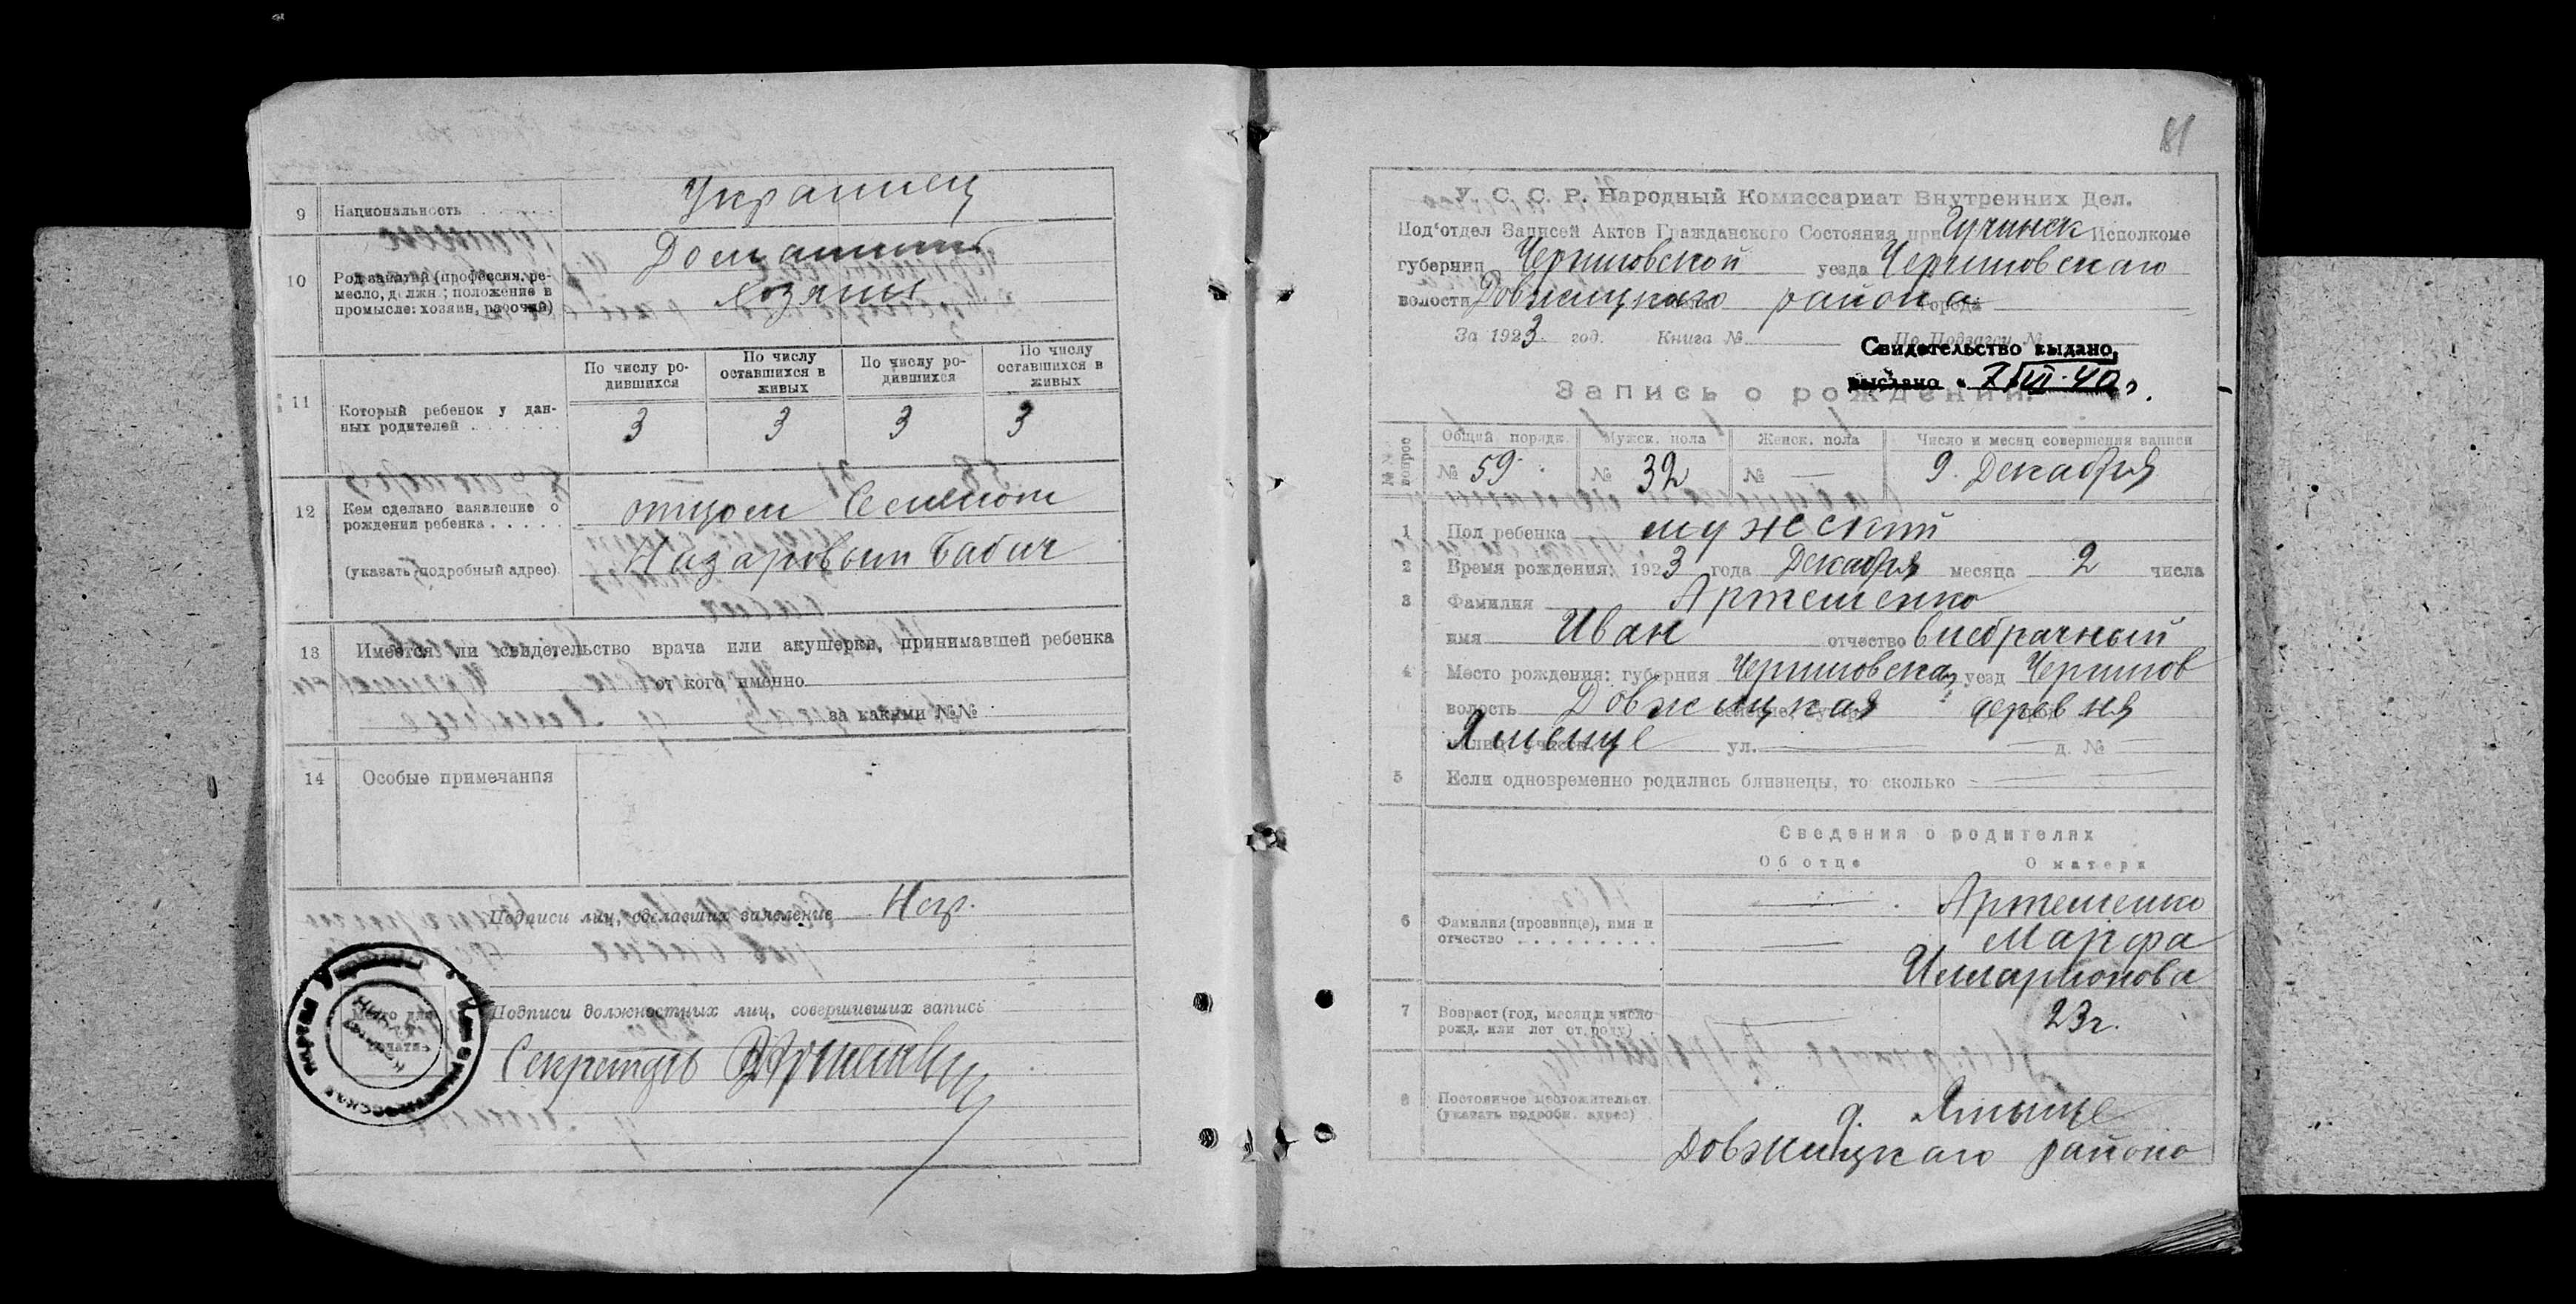 9 Национальность Украинец
10 Род занятий (профессия, ре-
месло, должн.; положение в
промысле: хозяин, рабочий)
Домашний
хозяин
11 Который ребенок у дан-
ных родителей
По числу ро-
дившихся
По числу
оставшихся в
живых
По числу ро-
дившихся
По числу
оставшихся в
живых
3 3 3 3
12 Кем сделано заявление о
рождении ребенка
(указать подробный адрес)
отцом Семеном
Назаровым Бабич
13 Имеется ли свидетельство врача или акушерки, принимавшей ребенка
от кого именно
за какими №№
14 Особые примечания
Подписи лиц, сделавших заявление Негр.
Место для
печати
Подписи должностных лиц, совершивших запись
Секретарь
81
У. С. С. Р. Народный Комиссариат Внутренних Дел.
Под'отдел Записей Актов Гражданского Состояния при Гучинск Исполкоме
губернии Черниговской уезда Черниговскаго
волости Довжицкаго района города
За 1923 год. Книга № По Подзагсу №
Свидетельство выдано,
выслано " 7/VII-40 г.
Запись о рождении.
№№ вопрос
Общий порядк. Мужск. пола Женск. пола Число и месяц совершения записи
№ 59 № 32 № — 9. Декабря
1 Пол ребенка мужский
2 Время рождения: 1923 года Декабря месяца 2 числа
3 Фамилия Артеменко
имя Иван отчество внебрачный
4 Место рождения: губерния Черниговская уезд Чернигов
волость Довжицкая деревня
Ямыще ул. д. №
5 Если одновременно родились близнецы, то сколько
Сведения о родителях
Об отце О матери
6 Фамилия (прозвище), имя и
отчество
Артеменко
Марфа
Иллармонова
7 Возраст (год, месяц и число
рожд. или лет от роду)
23 г.
8 Постоянное местожительст.
(указать подробн. адрес)
д. Ямыще
Довжицкаго района